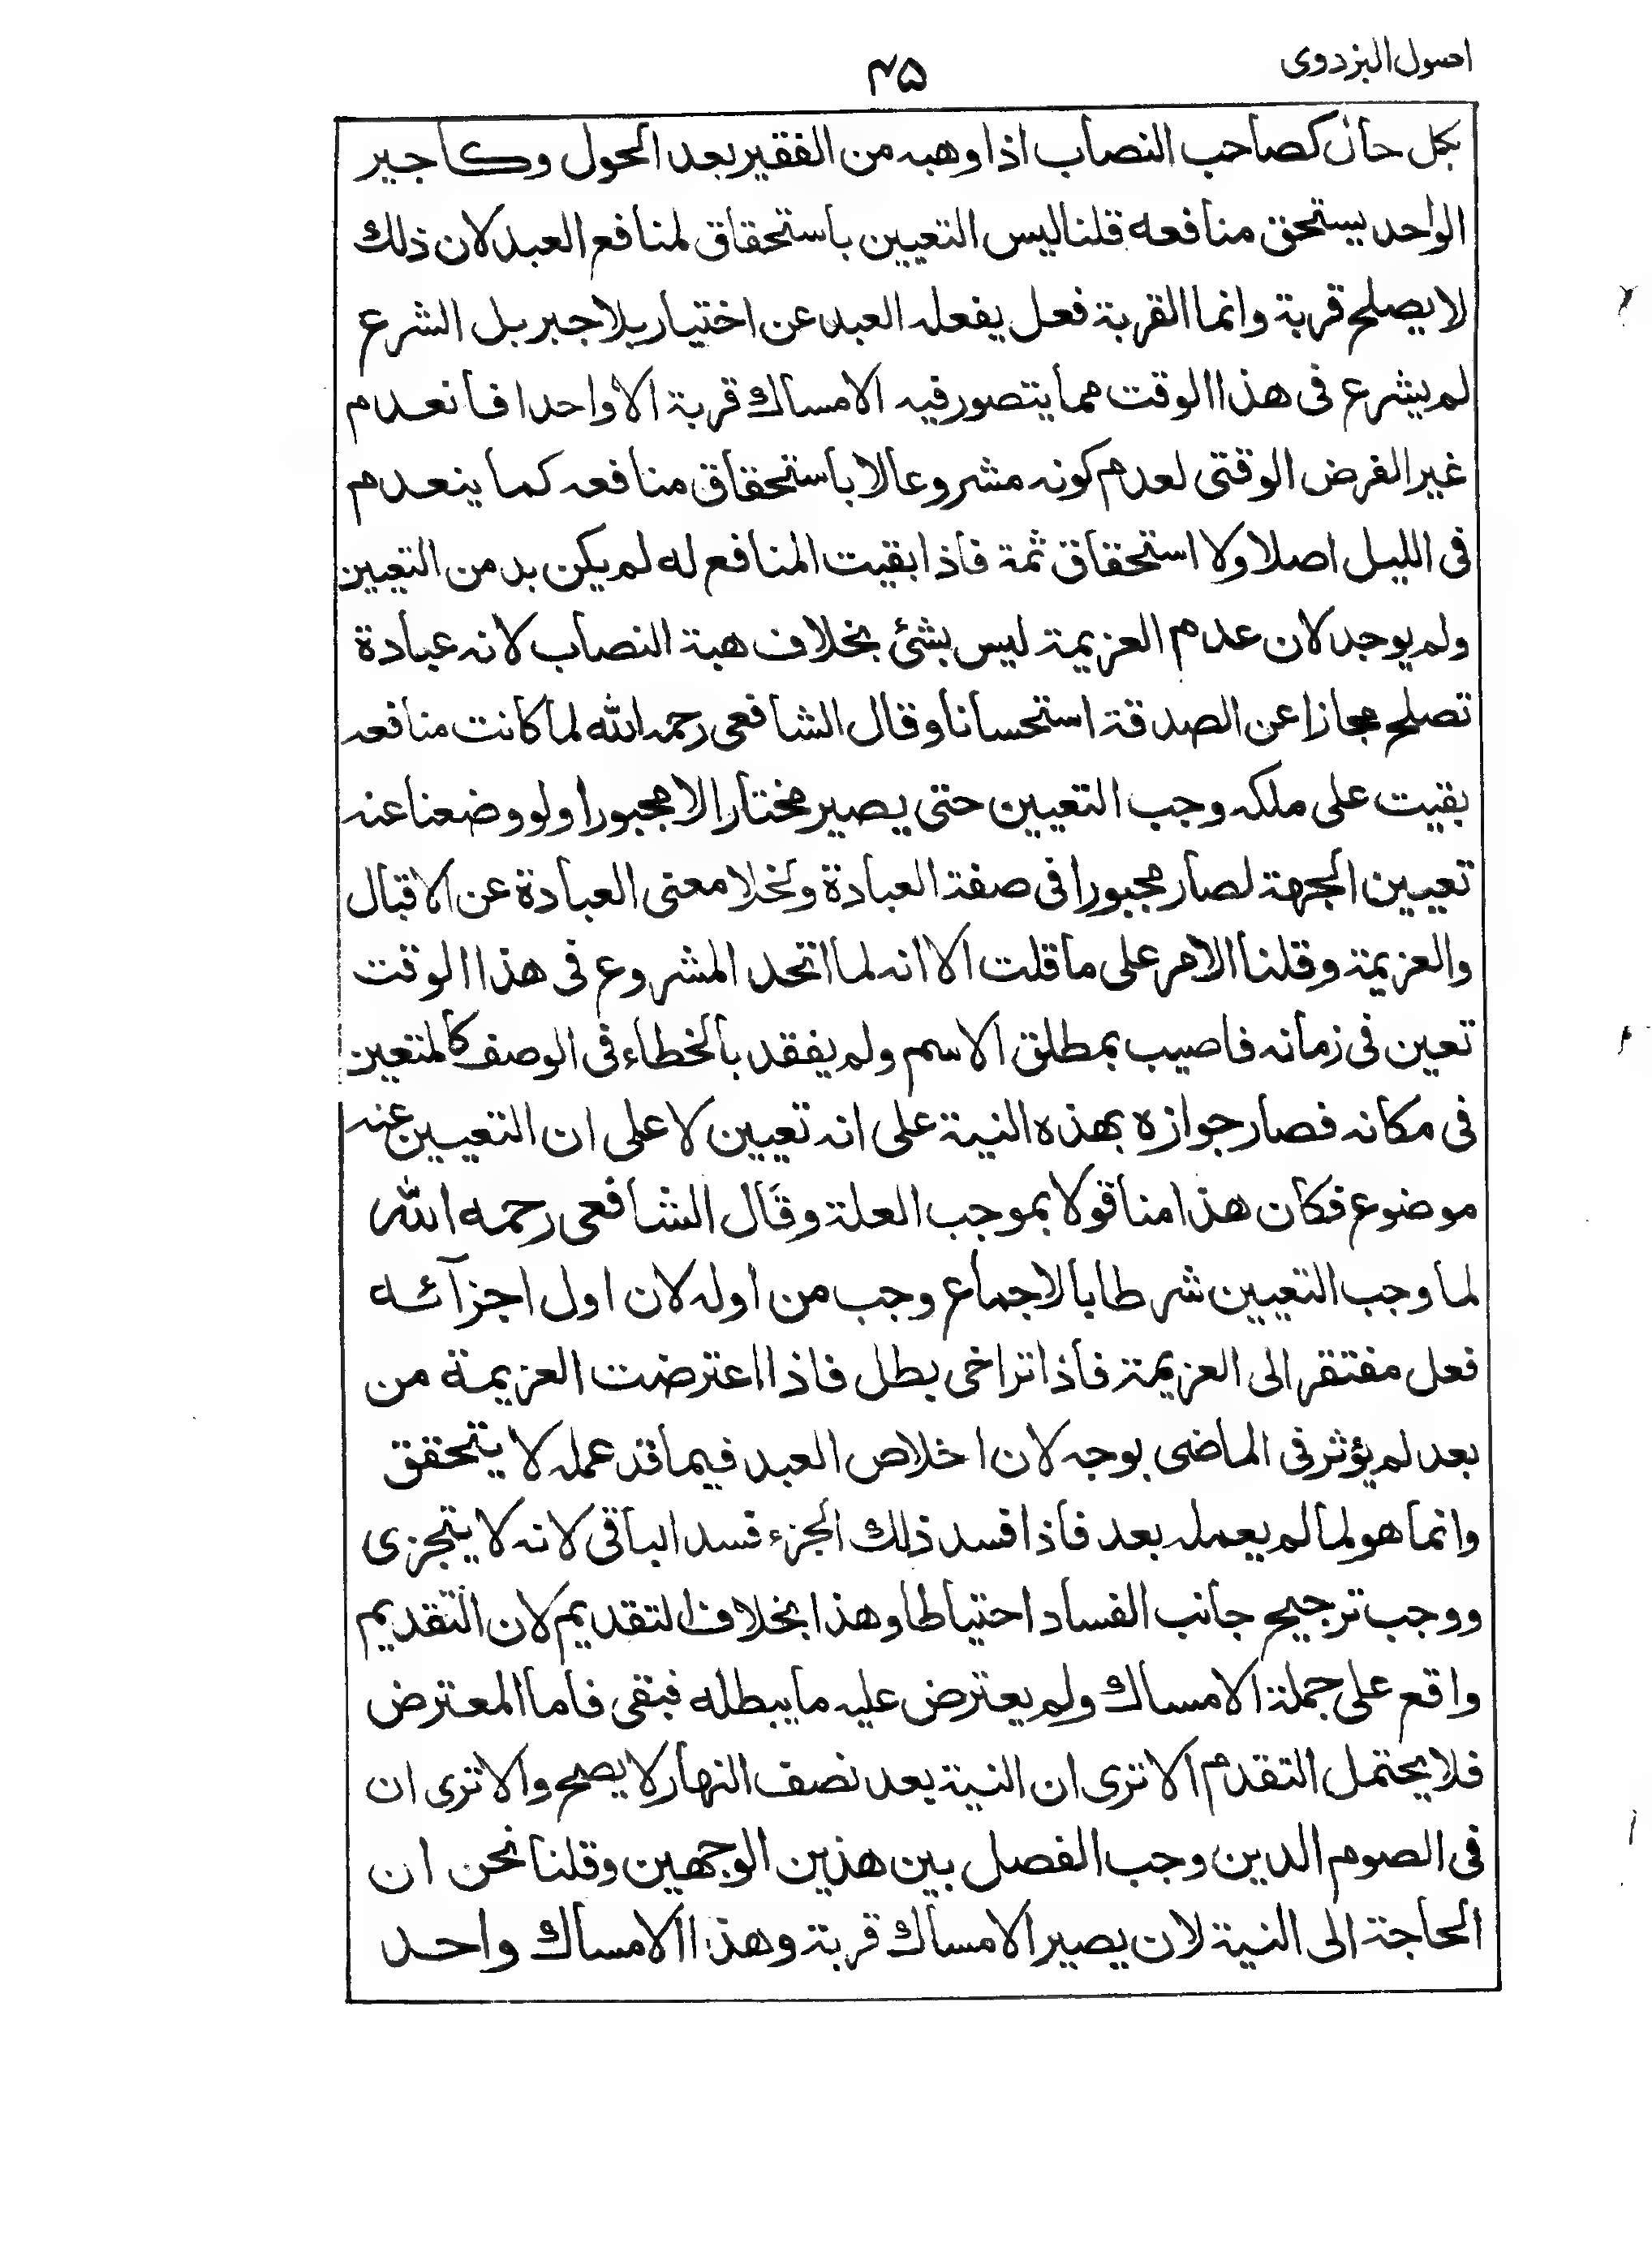 اصول البزدوى
۴۵
بكل حال كصاحب النصاب اذا وهبه من الفقير بعد الحول وكاجير
الواحد يستحق منافعه قلنا ليس التعيين باستحقاق لمنافع العبد لان ذلك
لا يصلح قربة وانما القربة فعل يفعله العبد عن اختيار بلا جبر بل الشرع
لم يشرع فى هذا الوقت مما يتصور فيه الامساك قربة الا واحدا فانعدم
غير الفرض الوقتى لعدم كونه مشروعا لا باستحقاق منافعه كما ينعدم
فى الليل اصلا ولا استحقاق ثمة فاذا بقيت المنافع له لم يكن بد من التعيين
ولم يوجد لان عدم العزيمة ليس بشئ بخلاف هبة النصاب لانه عبادة
تصلح مجازا عن الصدقة استحسانا وقال الشافعى رحمه الله لما كانت منافعه
بقيت على ملكه وجب التعيين حتى يصير مختارا لا مجبورا ولو وضعنا عنه
تعيين الجهة لصار مجبورا فى صفة العبادة ولخلا معنى العبادة عن الاقبال
والعزيمة وقلنا الامر على ما قلت الا انه لما اتحد المشروع فى هذا الوقت
تعين فى زمانه فاصيب بمطلق الاسم ولم يفقد بالخطاء فى الوصف كالمتعين
فى مكانه فصار جوازه بهذه النية على انه تعيين لا على ان التعيين عنه
موضوع فكان هذا منا قولا بموجب العلة وقال الشافعى رحمه الله
لما وجب التعيين شرطا بالاجماع وجب من اوله لان اول اجزآئه
فعل مفتقر الى العزيمة فاذا تراخى بطل فاذا اعترضت العزيمة من
بعد لم يؤثر فى الماضى بوجه لان اخلاص العبد فيما قد عمله لا يتحقق
وانما هو لما لم يعمله بعد فاذا فسد ذلك الجزء فسد الباقى لانه لا يتجزى
ووجب ترجيح جانب الفساد احتياطا وهذا بخلاف التقديم لان التقديم
واقع على جملة الامساك ولم يعترض عليه ما يبطله فبقى فاما المعترض
فلا يحتمل التقدم الا ترى ان النية بعد نصف النهار لا يصح والا ترى ان
فى الصوم الدين وجب الفصل بين هذين الوجهين وقلنا نحن ان
الحاجة الى النية لان يصير الامساك قربة وهذا الامساك واحد